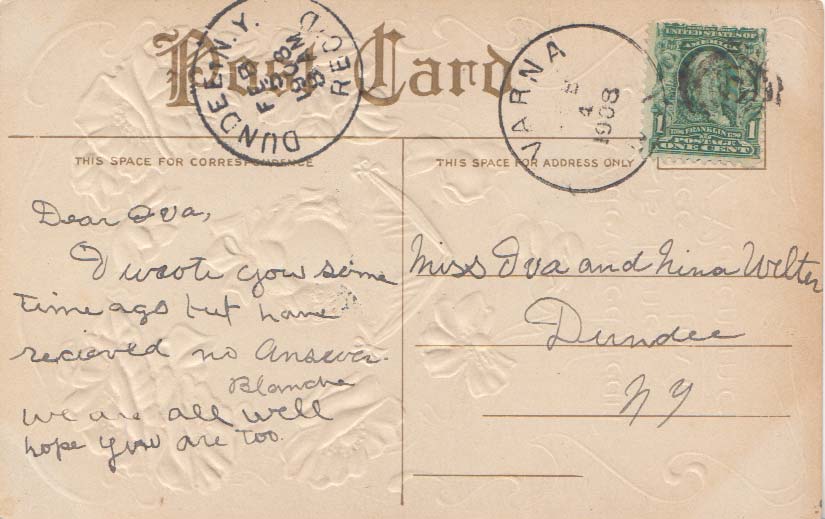 Post Card
DUNDEE, N.Y.
FEB
8
1908
REC'D
VARNA
4
1908
UNITED STATES OF
1 FRANKLIN 1
POSTAGE
ONE CENT
THIS SPACE FOR CORRESPONDENCE
THIS SPACE FOR ADDRESS ONLY
Dear Iva,
I wrote you some
time ago but have
recieved no answer.
Blanche
we are all well
hope you are too.
Miss Iva and Nina Welter
Dundee
NY